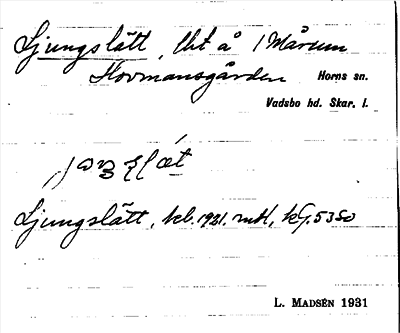 Ljungslätt, lht å 1 Mårum
Hovmansgården Horns sn.
Vadsbo hd. Skar. l.
Ljungslätt, kl. 1921. mtl, kG. 5350
L. MADSÉN 1931